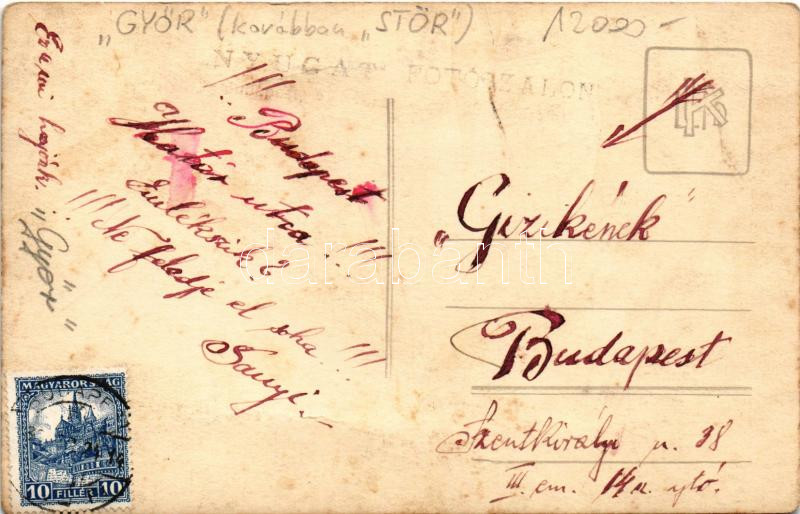 „GYŐR” (kovábban „STÖR”) 12000-
NYUGAT FOTÓSZALON
!!! Budapest
Határ utca !!!
Emlékszik?
!!! Ne feledje el soha !!!
Sanyi
Ez a mi
„Győr”
„Gizikének”
Budapest
Szentkirályi u. 38
III. em. 14 a. ajtó.
MAGYARORSZÁG
10 FILLÉR 10
darabanth